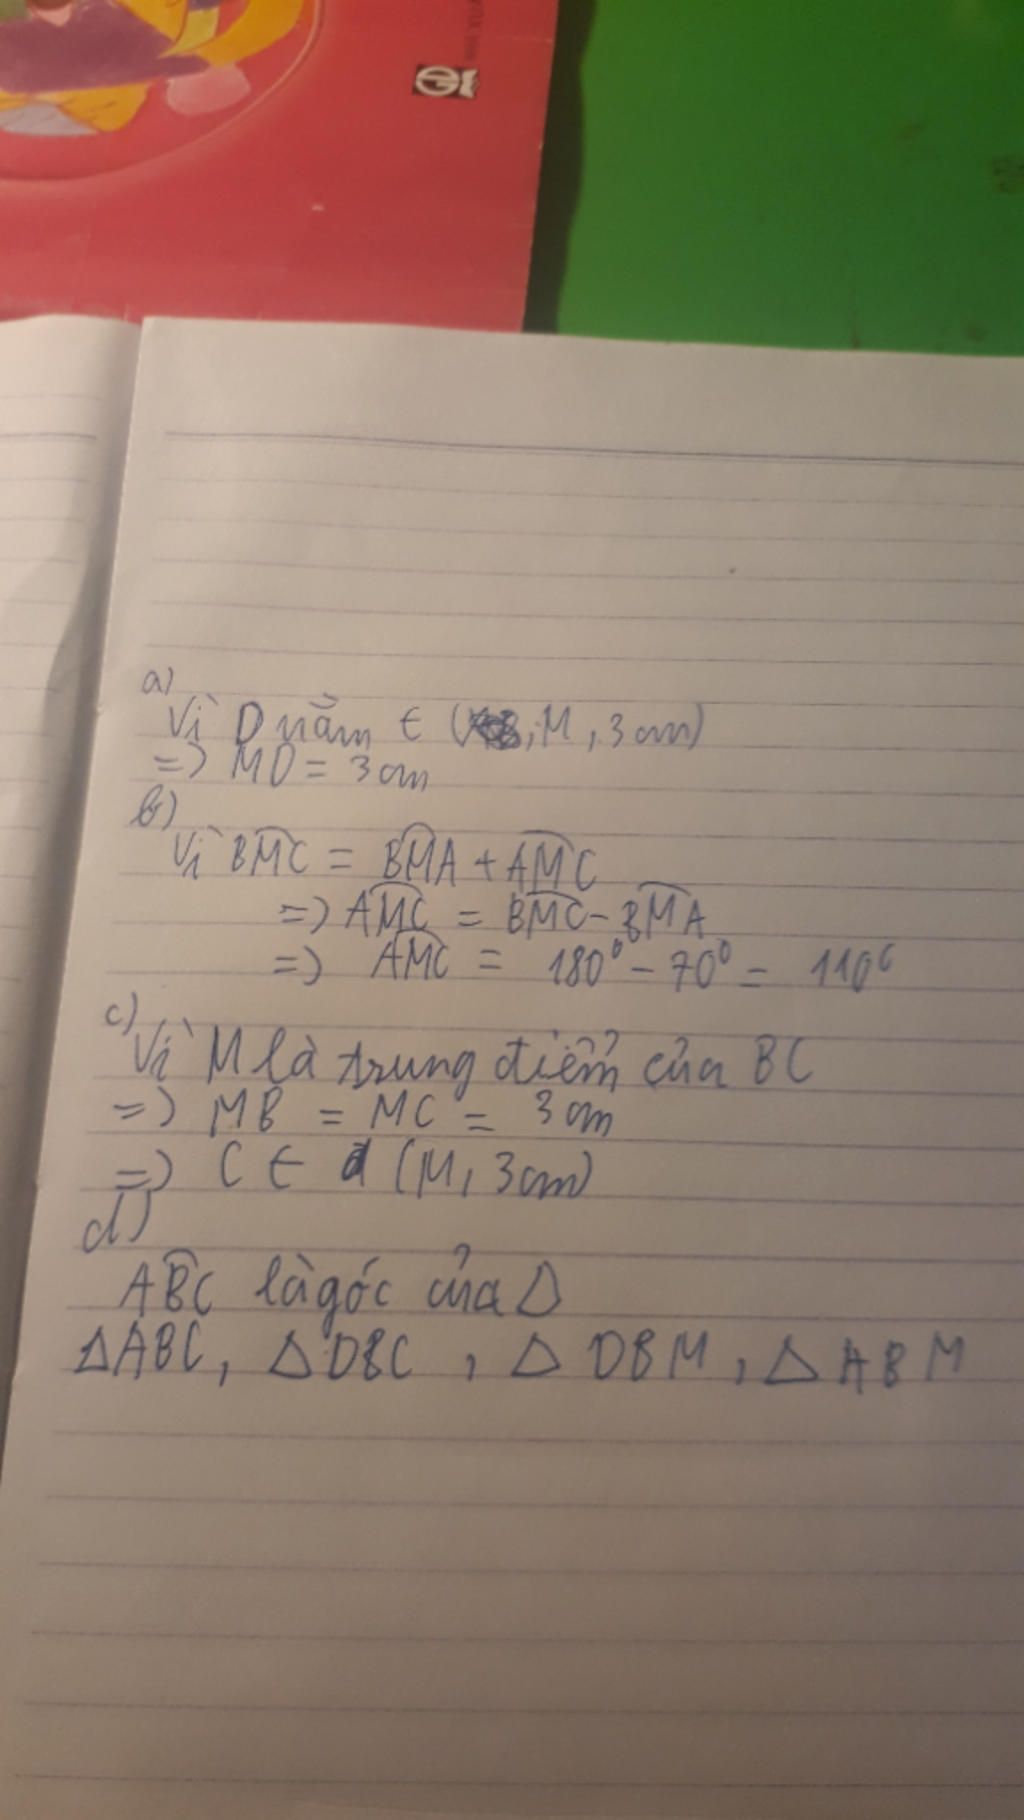 a)
Vì D nằm ∈ (M, 3cm)
=> MD = 3cm
b)
Vì BMC = BMA + AMC
=> AMC = BMC - BMA
=> AMC = 180° - 70° = 110°
c)
Vì M là trung điểm của BC
=> MB = MC = 3cm
=> C ∈ (M, 3cm)
d)
ABC là góc của Δ
ΔABC, ΔDBC, ΔDBM, ΔABM